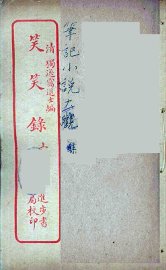 清 獨逸窩退士編
笑笑錄 上
進步書局校印
筆記小說大觀